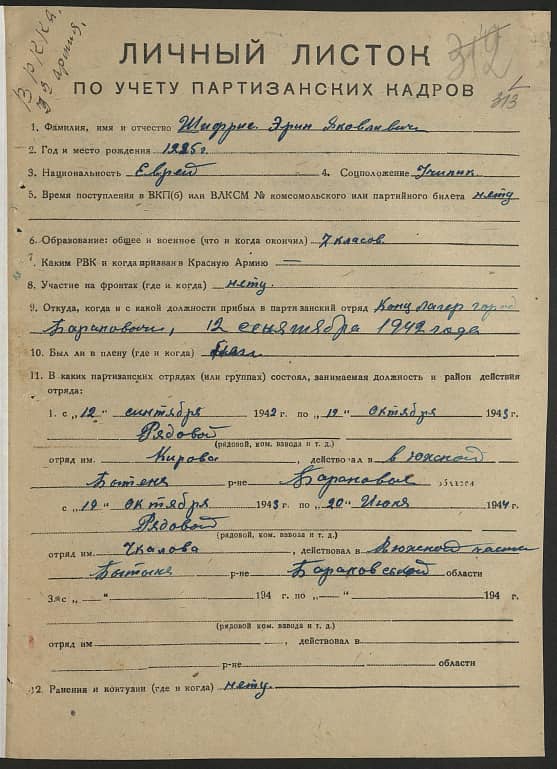 В РККА.
33 армия.
312
313
ЛИЧНЫЙ ЛИСТОК
ПО УЧЕТУ ПАРТИЗАНСКИХ КАДРОВ
1. Фамилия, имя и отчество Шифрис Эрин Яковлевич
2. Год и место рождения 1925г.
3. Национальность Еврей 4. Соцположение Ученик
5. Время поступления в ВКП(б) или ВЛКСМ № комсомольского или партийного билета нету
6. Образование: общее и военное (что и когда окончил) 7 класов.
7. Каким РВК и когда призван в Красную Армию —
8. Участие на фронтах (где и когда) нету.
9. Откуда, когда и с какой должности прибыл в партизанский отряд Конц лагер город
Барановичи, 12 сентября 1942 года
10. Был ли в плену (где и когда)
11. В каких партизанских отрядах (или группах) состоял, занимаемая должность и район действия
отряда:
1. с „12" синтября 1942 г. по „12" октября 1943 г.
Рядовой
(рядовой, ком. взвода и т. д.)
отряд им. Кирова, действовал в южской
Бытеня р-не Баранович области
с „12" октября 1943 г. по „20" Июня 1944 г.
Рядовой
(рядовой, ком. взвода и т. д.)
отряд им. Чкалова, действовал в южской части
Бытыня р-не Барановской области
3. с „—" 194 г. по „—" 194 г.
(рядовой, ком. взвода и т. д.)
отряд им , действовал в
р-не области
12. Ранения и контузии (где и когда) нету.